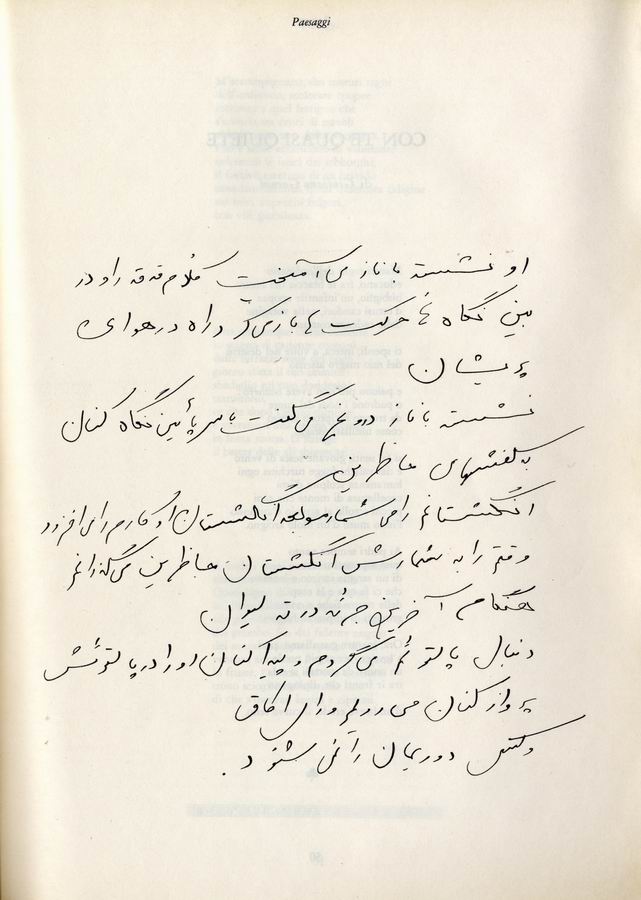 Paesaggi
او نشسته با ناز می آمیخت کلام قه قه راه در
بین نگاه حرکت بازی گر در راه در هوای
پریشان
نشسته با ناز دروغ می گفت با سر پائین نگاه کنان
به کفشهای حاظرین
انگشتانم را می شمارم و بعد انگشتان او کنارم را می افزود
وقتم را به شمارش انگشتان حاظرین می گذرانم
هنگام آخرین جرئه در ته لیوان
دنبال پالتو ئم می گردم و پیدا کنان او را در پالتوئش
پرواز کنان می رویم ورای اطاق
و کسی دوریمان را نمی شنود.